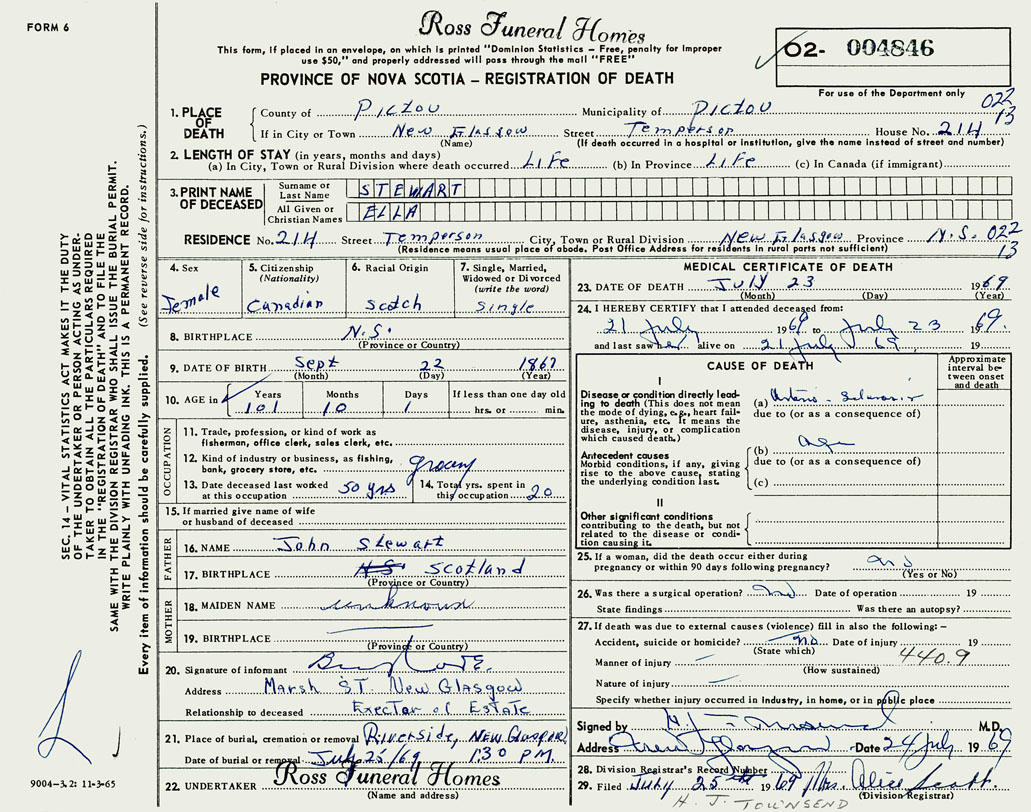 FORM 6
Ross Funeral Homes
This form, if placed in an envelope, on which is printed "Dominion Statistics – Free, penalty for improper
use $50," and properly addressed will pass through the mail "FREE"
PROVINCE OF NOVA SCOTIA – REGISTRATION OF DEATH
O2- 004846
For use of the Department only
022
13
1. PLACE OF DEATH
County of Pictou Municipality of Pictou
If in City or Town New Glasgow Street Temperson House No. 214
(Name) (If death occurred in a hospital or institution, give the name instead of street and number)
2. LENGTH OF STAY (in years, months and days)
(a) In City, Town or Rural Division where death occurred Life (b) In Province Life (c) In Canada (if immigrant)
3. PRINT NAME OF DECEASED
Surname or Last Name STEWART
All Given or Christian Names ELLA
RESIDENCE No. 214 Street Temperson City, Town or Rural Division New Glasgow Province N.S. 022
(Residence means usual place of abode. Post Office Address for residents in rural parts not sufficient) 13
4. Sex Female
5. Citizenship (Nationality) Canadian
6. Racial Origin Scotch
7. Single, Married, Widowed or Divorced (write the word) Single
8. BIRTHPLACE N.S.
(Province or Country)
9. DATE OF BIRTH Sept 22 1867
(Month) (Day) (Year)
10. AGE in Years Months Days If less than one day old
101 10 1 hrs. or min.
OCCUPATION
11. Trade, profession, or kind of work as
fisherman, office clerk, sales clerk, etc.
12. Kind of industry or business, as fishing,
bank, grocery store, etc. grocery
13. Date deceased last worked at this occupation 50 yrs
14. Total yrs. spent in this occupation 20
15. If married give name of wife
or husband of deceased
FATHER
16. NAME John Stewart
17. BIRTHPLACE N.S. Scotland
(Province or Country)
MOTHER
18. MAIDEN NAME unknown
19. BIRTHPLACE
(Province or Country)
20. Signature of informant
Address Marsh ST. New Glasgow
Relationship to deceased Exector of Estate
21. Place of burial, cremation or removal Riverside, New Glasgow
Date of burial or removal July 25/69 1:30 P.M.
22. UNDERTAKER Ross Funeral Homes
(Name and address)
MEDICAL CERTIFICATE OF DEATH
23. DATE OF DEATH July 23 1969
(Month) (Day) (Year)
24. I HEREBY CERTIFY that I attended deceased from:
21 July 1969 to July 23 1969.
and last saw her alive on 21 July 69 19
CAUSE OF DEATH
Approximate interval between onset and death
I
Disease or condition directly leading to death (This does not mean
the mode of dying, e.g., heart failure, asthenia, etc. It means the
disease, injury, or complication
which caused death.)
(a) Arterio-Sclerosis
due to (or as a consequence of)
Antecedent causes
Morbid conditions, if any, giving
rise to the above cause, stating
the underlying condition last.
(b) Age
due to (or as a consequence of)
(c)
II
Other significant conditions
contributing to the death, but not
related to the disease or condition causing it.
25. If a woman, did the death occur either during
pregnancy or within 90 days following pregnancy? no
(Yes or No)
26. Was there a surgical operation? no Date of operation 19
State findings Was there an autopsy?
27. If death was due to external causes (violence) fill in also the following: –
Accident, suicide or homicide? no Date of injury 19
(State which)
440.9
Manner of injury
(How sustained)
Nature of injury
Specify whether injury occurred in Industry, in home, or in public place
Signed by M.D.
Address New Glasgow Date 24 July 1969
28. Division Registrar's Record Number
29. Filed July 25th 1969 Mrs. Alice Scott
(Division Registrar)
H. J. TOWNSEND
SEC. 14 – VITAL STATISTICS ACT MAKES IT THE DUTY
OF THE UNDERTAKER OR PERSON ACTING AS UNDER-
TAKER TO OBTAIN ALL THE PARTICULARS REQUIRED
IN THE "REGISTRATION OF DEATH" AND TO FILE THE
SAME WITH THE DIVISION REGISTRAR WHO SHALL ISSUE THE BURIAL PERMIT.
WRITE PLAINLY WITH UNFADING INK. THIS IS A PERMANENT RECORD.
Every item of information should be carefully supplied. (See reverse side for instructions.)
9004-3.2: 11-3-65